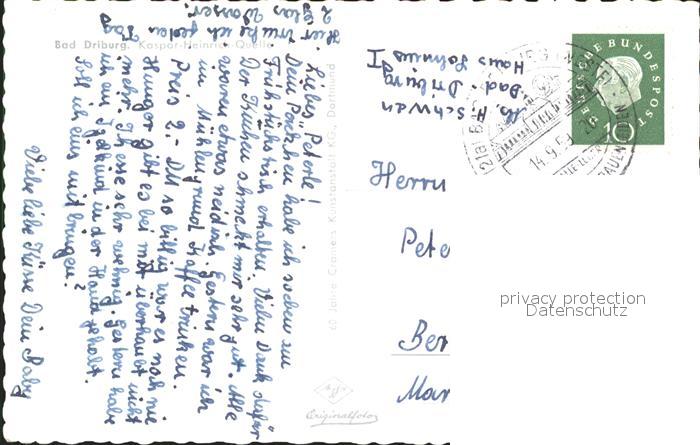 Bad Driburg. Kaspar-Heinrich-Quelle
Hier trinke ich jeden Tag
2 Glas Wasser.
Liebes Peterle!
Dein Päckchen habe ich soeben am
Frühstückstisch erhalten. Vielen Dank dafür
Der Kuchen schmeckt mir sehr gut. Alle
waren etwas neidisch. Gestern war ich
im Mühlengrund Kaffee trinken.
Preis 2.- DM so billig war es noch nie
Hunger gibt es bei mir überhaubt nicht
mehr. Ich esse sehr wenig. Gestern habe
ich ein Igelkind in der Hand gehabt.
Soll ich eins mitbringen?
Viele liebe Küsse Dein Baby
60 Jahre Cramers Kunstanstalt KG., Dortmund
Agfa
Originalfoto
Abs. H. Schwan
Bad-Driburg
Haus Johannes I
DEUTSCHE BUNDESPOST
10
(21a) BAD
14.9.59
Herrn
Pete
Ber
Mar
privacy protection
Datenschutz